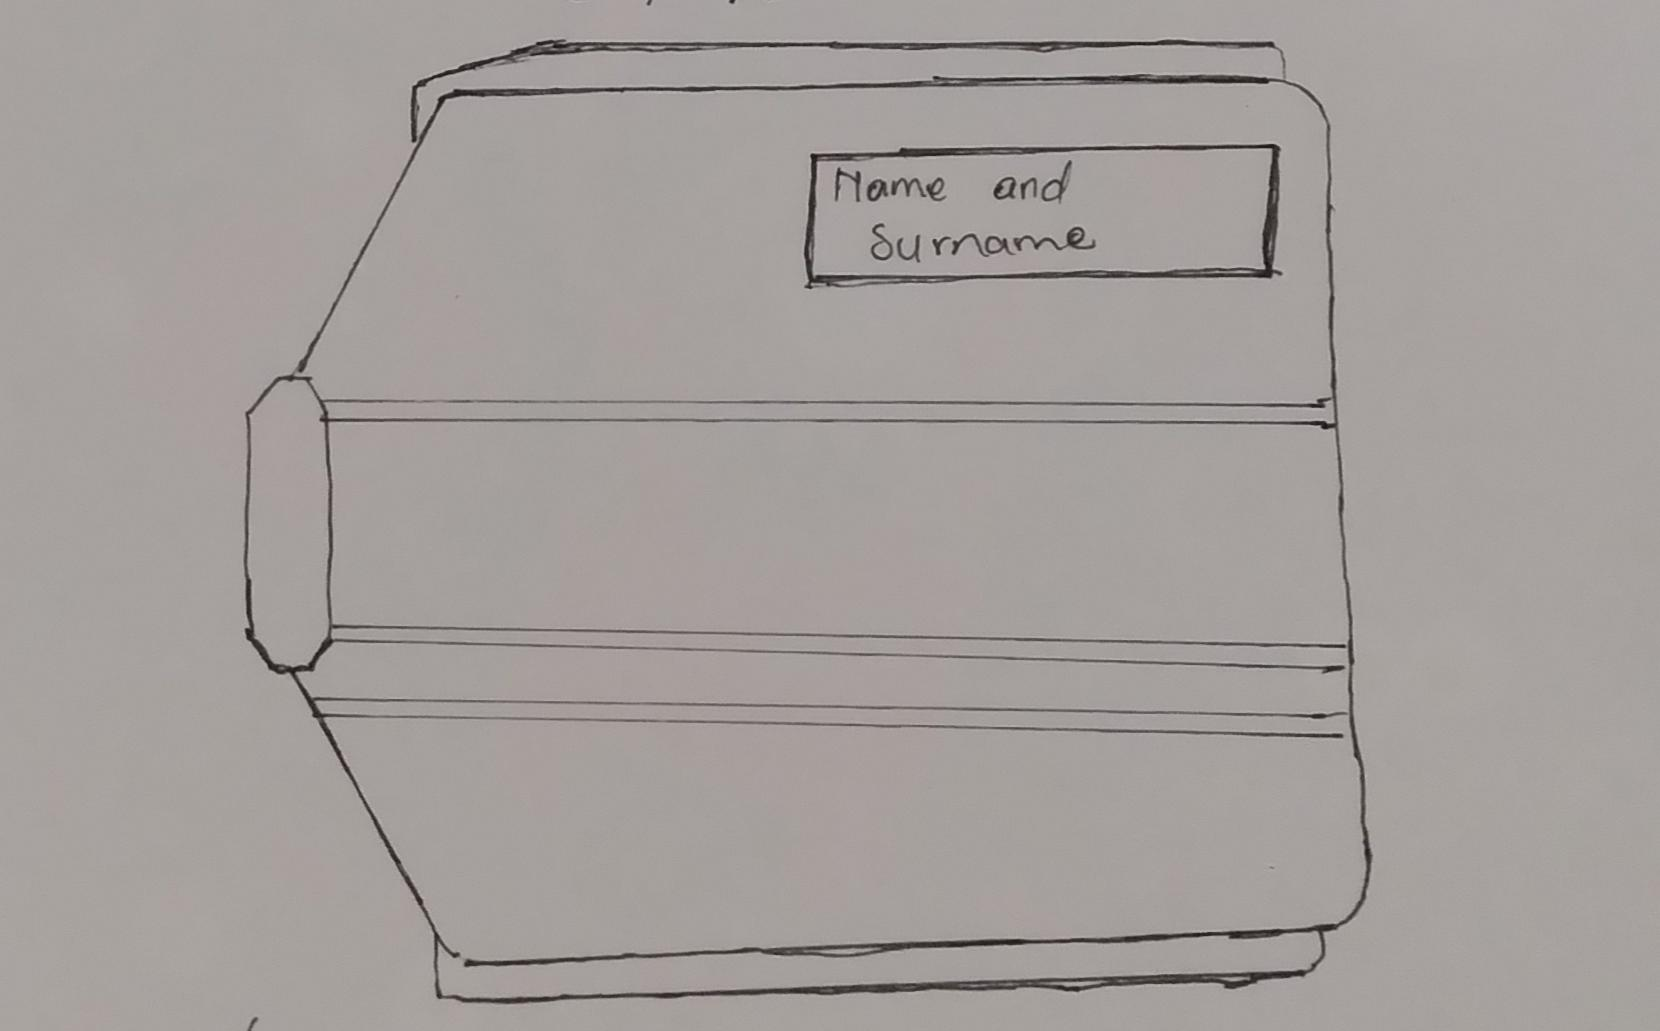 Name and
Surname